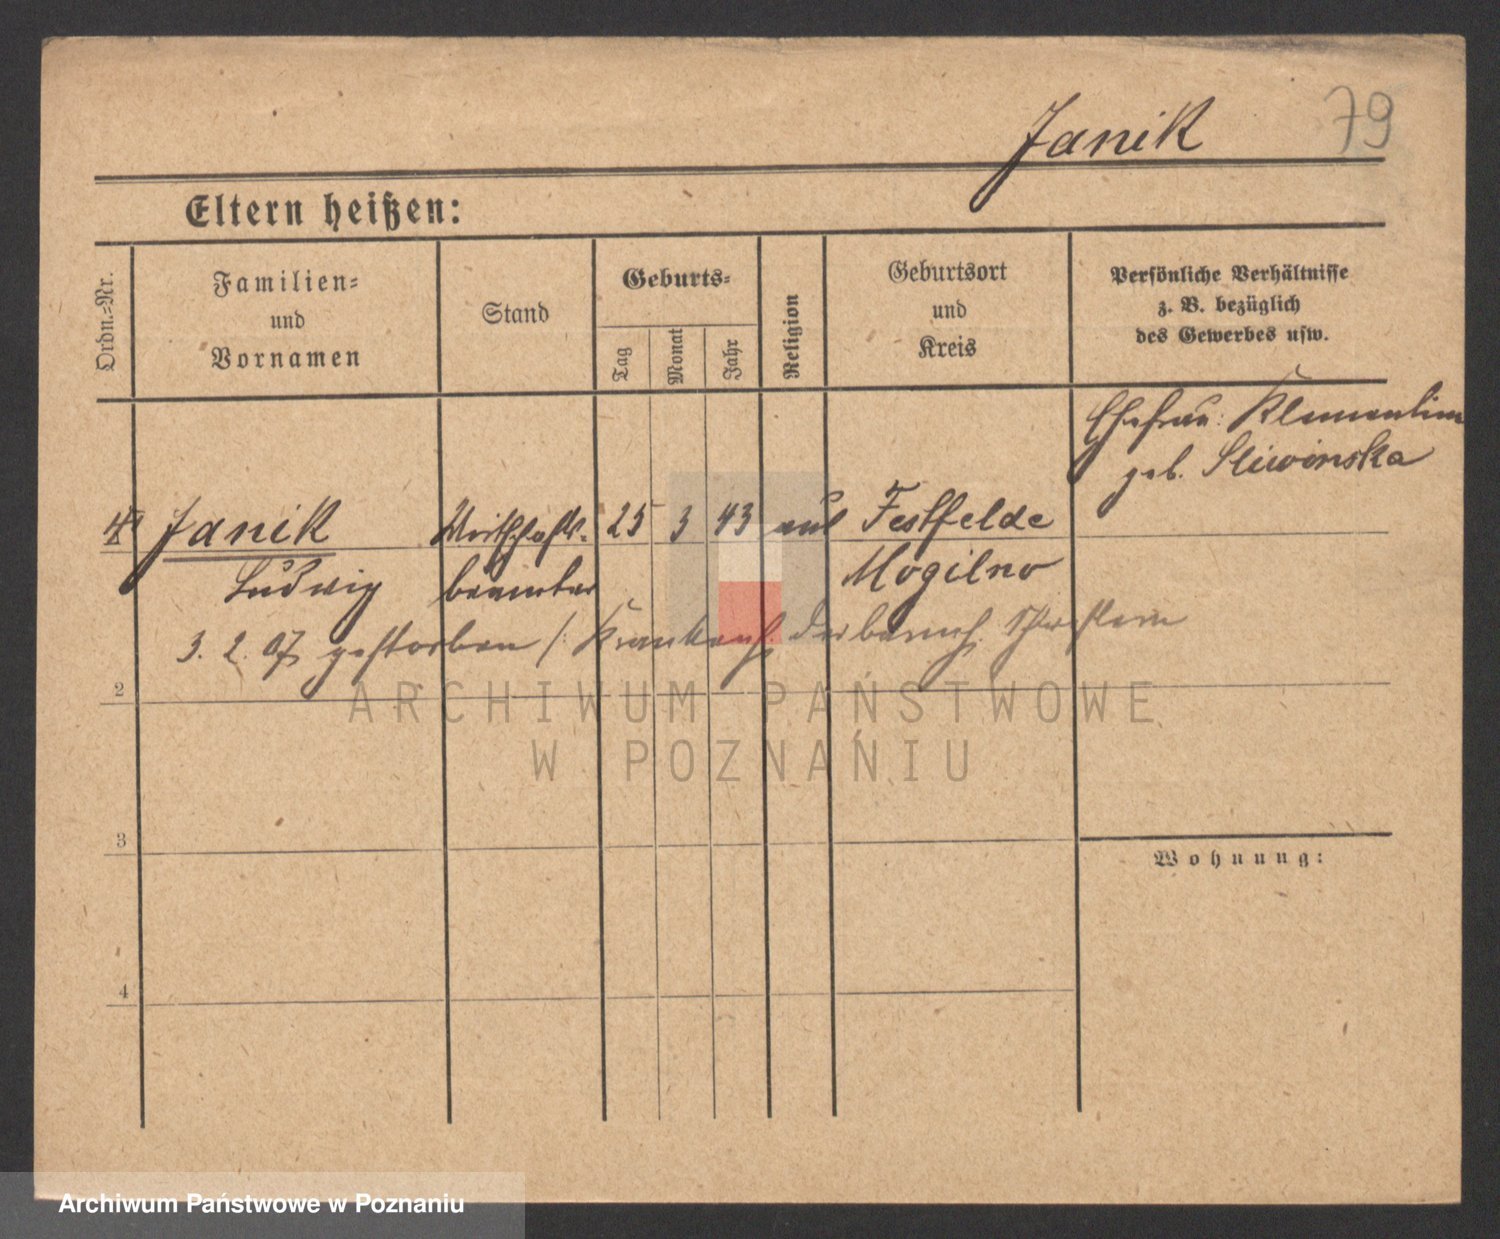 Janik 79
Eltern heißen:
Ordn.-Nr.
Familien-
und
Vornamen
Stand
Geburts-
Tag
Monat
Jahr
Religion
Geburtsort
und
Kreis
Persönliche Verhältnisse
z. B. bezüglich
des Gewerbes usw.
Ehefrau: Klementine
geb. Sliwinska
Janik Wirthschafts- 25 3 43 Festfelde
Ludwig beamter Mogilno
3. 2. 07 gestorben /: Krankenh. der barmh. Schwestern
2
3
4
Wohnung:
ARCHIWUM PAŃSTWOWE
W POZNANIU
Archiwum Państwowe w Poznaniu